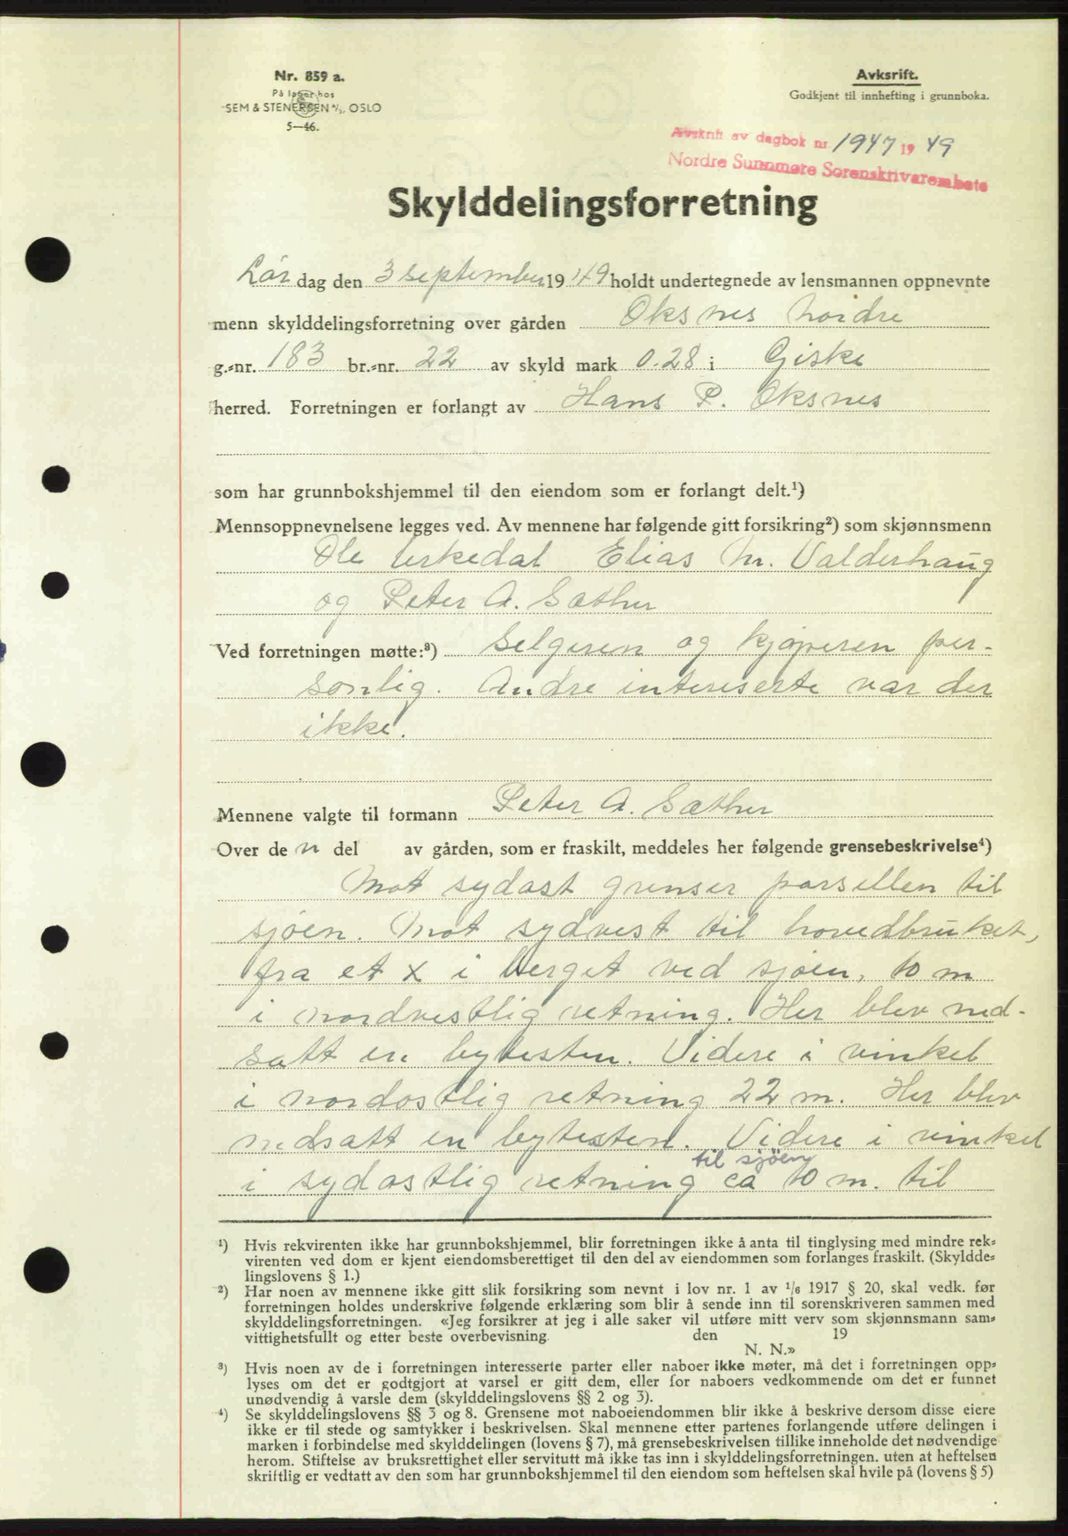 Nr. 859 a.
På lager hos
SEM & STENERSEN A/S, OSLO
5—46.
Avksrift.
Godkjent til innhefting i grunnboka.
Avskrift av dagbok nr 1947 19 49
Nordre Sunnmøre Sorenskriverembete
Skylddelingsforretning
Lør dag den 3 september 19 49 holdt undertegnede av lensmannen oppnevnte
menn skylddelingsforretning over gården Oksnes nordre
g.-nr. 183 br.-nr. 22 av skyld mark 0.28 i Giske
herred. Forretningen er forlangt av Hans P. Oksnes
som har grunnbokshjemmel til den eiendom som er forlangt delt.¹)
Mennsoppnevnelsene legges ved. Av mennene har følgende gitt forsikring²) som skjønnsmenn
Ole Urkedal Elias M. Valderhaug
og Peter A. Sæther
Ved forretningen møtte:³) Selgeren og kjøperen per-
sonlig. Andre intereserte var der
ikke.
Mennene valgte til formann Peter A. Sæther
Over de n del av gården, som er fraskilt, meddeles her følgende grensebeskrivelse⁴)
Mot sydøst grenser parsellen til
sjøen. Mot sydvest til hovedbruket,
fra et x i berget ved sjøen, 10 m
i nordvestlig retning. Her blev ned-
satt en bytesten. Videre i vinkel
i nordøstlig retning 22 m. Her blev
nedsatt en bytesten. Videre i vinkel
til sjøen
i sydøstlig retning ca 10 m. til
¹) Hvis rekvirenten ikke har grunnbokshjemmel, blir forretningen ikke å anta til tinglysing med mindre rek-
virenten ved dom er kjent eiendomsberettiget til den del av eiendommen som forlanges fraskilt. (Skyldde-
lingslovens § 1.)
²) Har noen av mennene ikke gitt slik forsikring som nevnt i lov nr. 1 av 1/6 1917 § 20, skal vedk. før
forretningen holdes underskrive følgende erklæring som blir å sende inn til sorenskriveren sammen med
skylddelingsforretningen. «Jeg forsikrer at jeg i alle saker vil utføre mitt verv som skjønnsmann sam-
vittighetsfullt og etter beste overbevisning. den 19
N. N.»
³) Hvis noen av de i forretningen interesserte parter eller naboer ikke møter, må det i forretningen opp-
lyses om det er godtgjort at varsel er gitt dem, eller for naboers vedkommende om det er funnet
unødvendig å varsle dem (skylddelingslovens §§ 2 og 3).
⁴) Se skylddelingslovens §§ 3 og 8. Grensene mot naboeiendommen blir ikke å beskrive dersom disse eiere
ikke er til stede og samtykker i beskrivelsen. Skal mennene etter partenes forlangende utføre delingen i
marken i forbindelse med skylddelingen (lovens § 7), må grensebeskrivelsen tillike inneholde det nødvendige
herom. Stiftelse av bruksrettighet eller servitutt må ikke tas inn i skylddelingsforretningen. uten at heftelsen
skriftlig er vedtatt av den som har grunnbokshjemmel til den eiendom som heftelsen skal hvile på (lovens § 5)